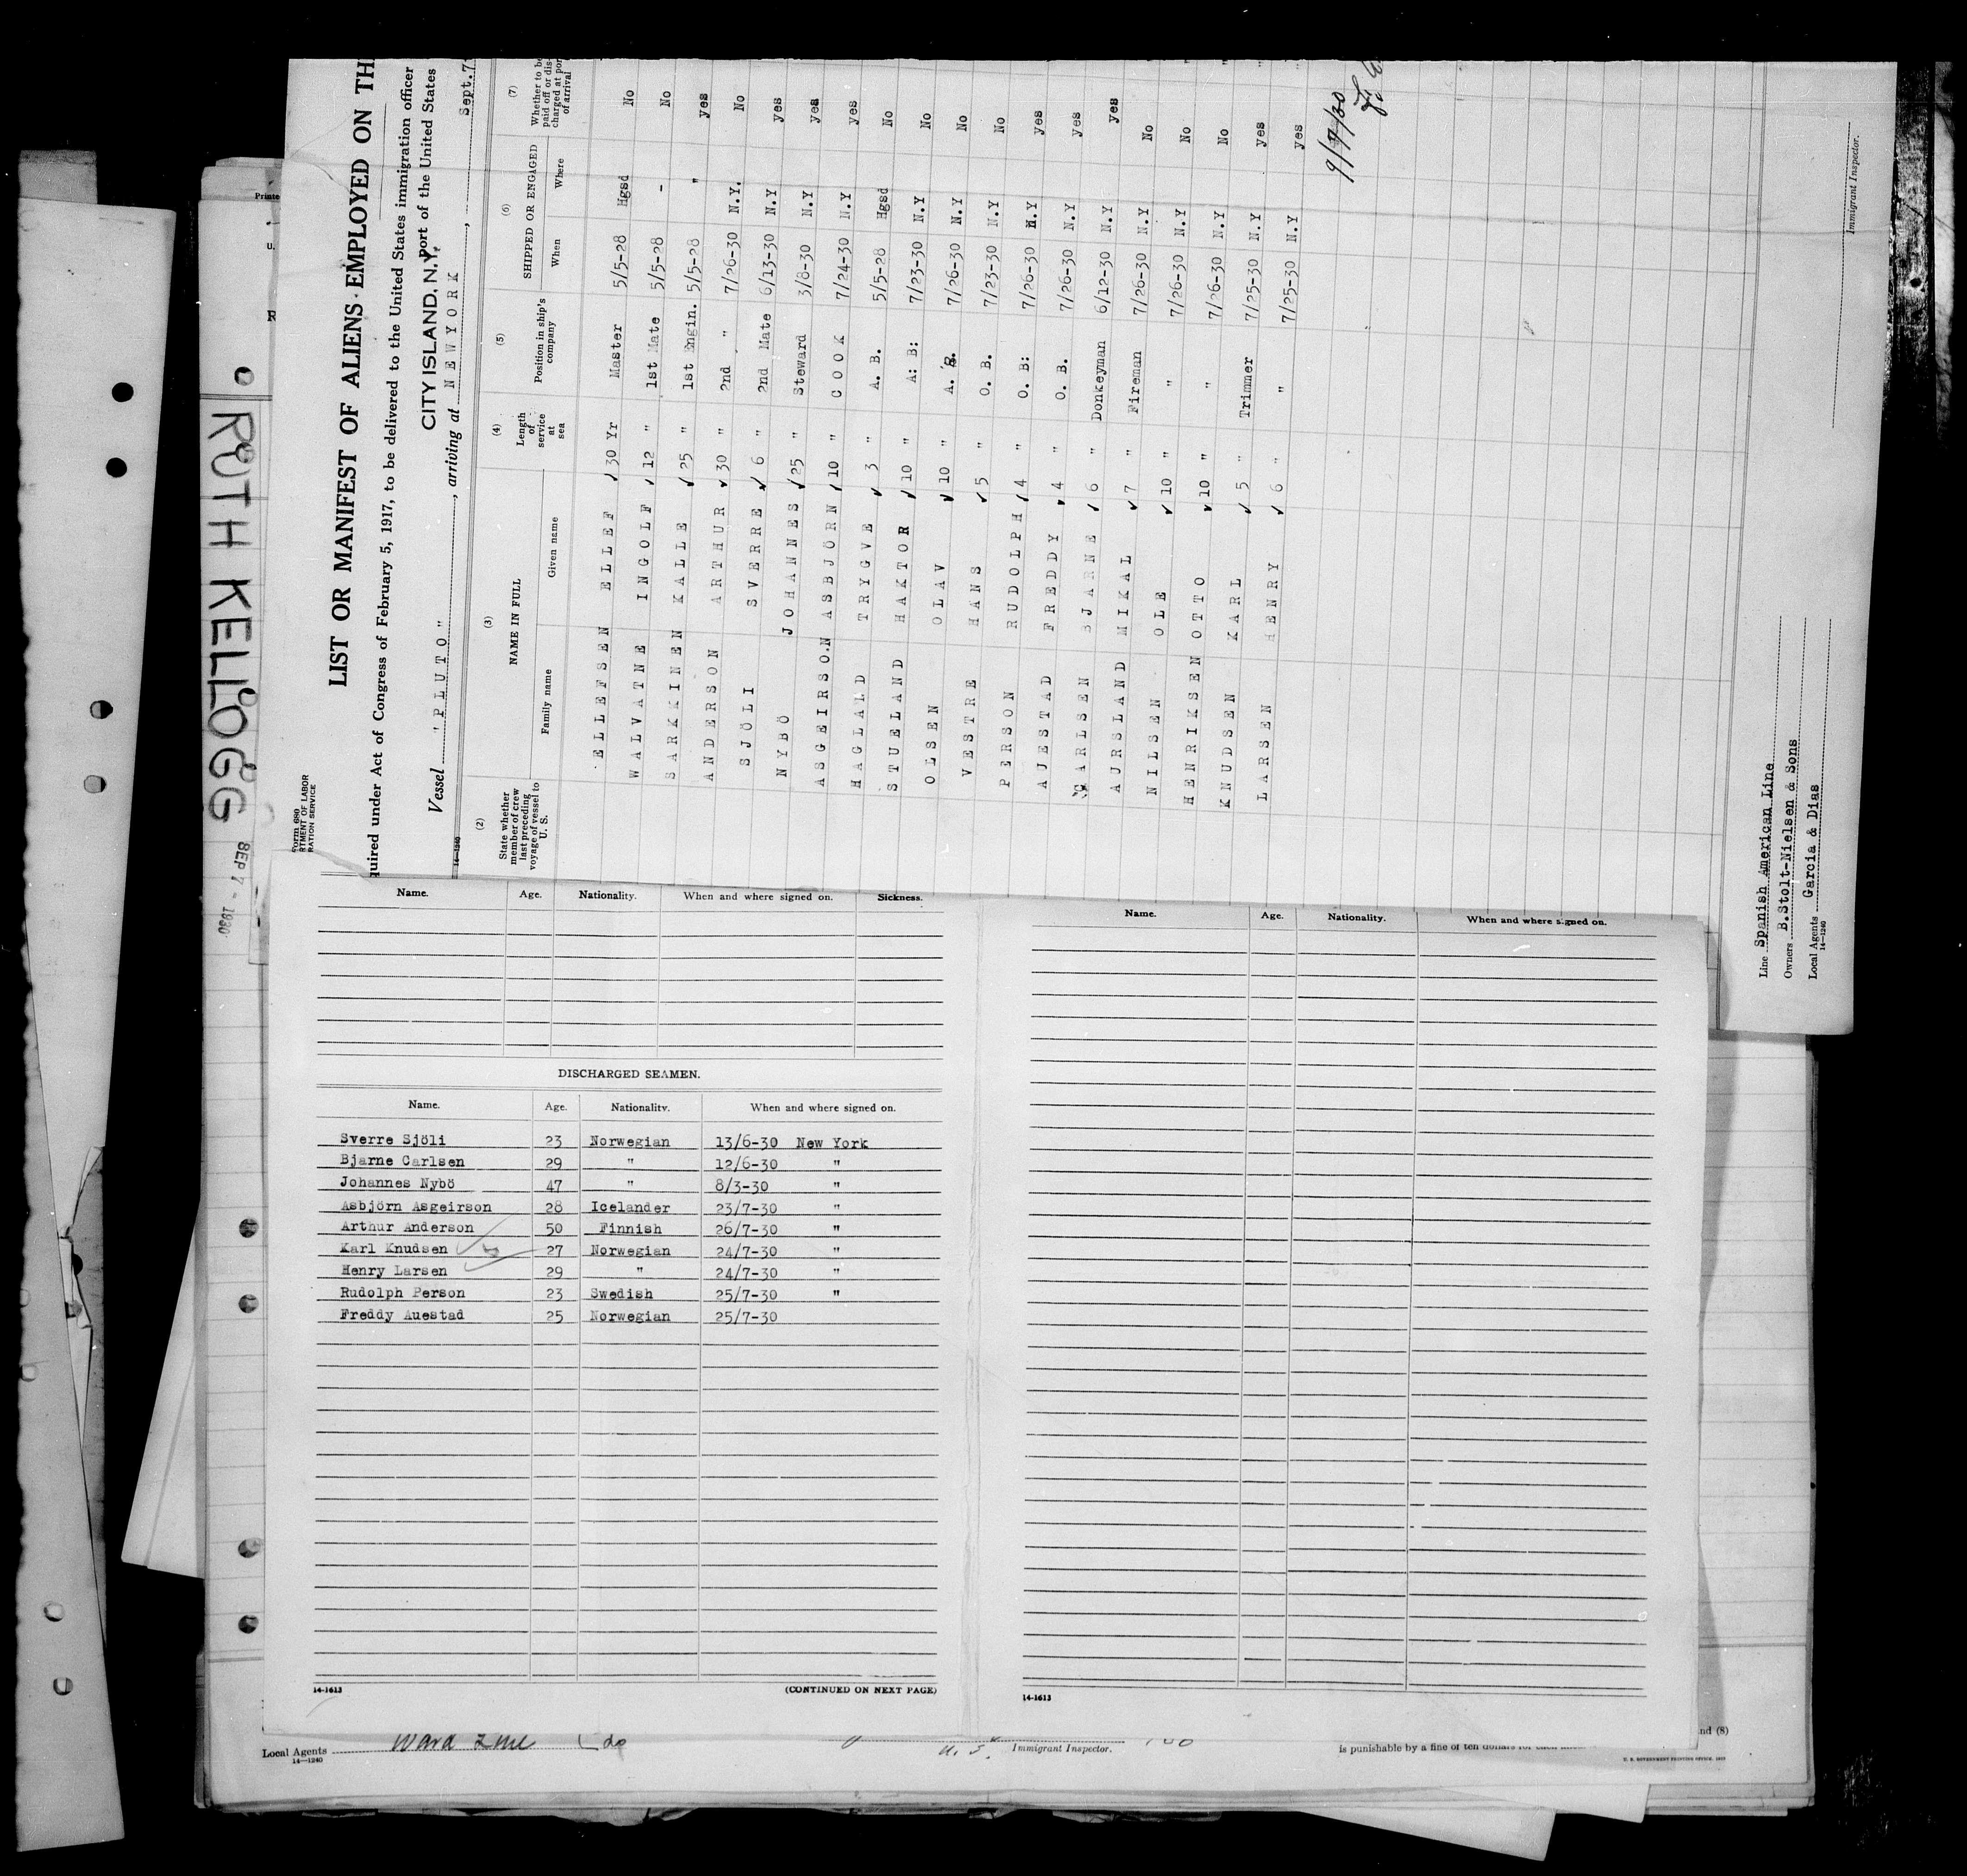 Form 680
RTMENT OF LABOR
RATION SERVICE
LIST OR MANIFEST OF ALIENS EMPLOYED ON TH
quired under Act of Congress of February 5, 1917, to be delivered to the United States immigration officer
port of the United States
CITY ISLAND, N.Y.
Vessel "PLUTO", arriving at NEW YORK, Sept.7
14-1240
(2) (3) (4) (5) (6) (7)
State whether member of crew last preceding voyage of vessel to U. S. NAME IN FULL Length of service at sea Position in ship's company SHIPPED OR ENGAGED Whether to be paid off or discharged at port of arrival
Family name Given name When Where
ELLEFSEN ELLEF 30 Yr Master 5/5-28 Hgsd No
WALVATNE INGOLF 12 " 1st Mate 5/5-28 - No
SARKKINEN KALLE 25 " 1st Engin. 5/5-28 " yes
ANDERSON ARTHUR 30 " 2nd " 7/26-30 N.Y. No
SJÖLI SVERRE 6 " 2nd Mate 6/13-30 N.Y yes
NYBÖ JOHANNES 25 " Steward 3/8-30 N.Y yes
ASGEIRSON ASBJÖRN 10 " COOK 7/24-30 N.Y yes
HAGLAND TRYGVE 3 " A. B. 5/5-28 Hgsd No
STUELAND HAKTOR 10 " A: B: 7/23-30 N.Y No
OLSEN OLAV 10 " A. B. 7/26-30 N.Y No
VESTRE HANS 5 " O. B. 7/23-30 N.Y No
PERSON RUDOLPH 4 " O. B: 7/26-30 N.Y yes
AJESTAD FREDDY 4 " O. B. 7/26-30 N.Y yes
CARLSEN BJARNE 6 " Donkeyman 6/12-30 N.Y yes
AJRSLAND MIKAL 7 " Fireman 7/26-30 N.Y No
NILSEN OLE 10 " " 7/26-30 N.Y No
HENRIKSEN OTTO 10 " " 7/26-30 N.Y No
KNUDSEN KARL 5 " Trimmer 7/25-30 N.Y yes
LARSEN HENRY 6 " " 7/25-30 N.Y yes
9/7/30
Immigrant Inspector.
Line Spanish American Line
Owners B.Stolt-Nielsen & Sons
Local Agents Garcia & Dias
14-1240
RUTH KELLOGG
SEP 7 - 1930
Printe
U.
Name. Age. Nationality. When and where signed on. Sickness.
DISCHARGED SEAMEN.
Name. Age. Nationality. When and where signed on.
Sverre Sjöli 23 Norwegian 13/6-30 New York
Bjarne Carlsen 29 " 12/6-30 "
Johannes Nybö 47 " 8/3-30 "
Asbjörn Asgeirson 28 Icelander 23/7-30 "
Arthur Anderson 50 Finnish 26/7-30 "
Karl Knudsen 27 Norwegian 24/7-30 "
Henry Larsen 29 " 24/7-30 "
Rudolph Person 23 Swedish 25/7-30 "
Freddy Auestad 25 Norwegian 25/7-30
14-1613 (CONTINUED ON NEXT PAGE)
Name. Age. Nationality. When and where signed on.
14-1613
Local Agents Ward Line
14-1240
U. S. Immigrant Inspector.
nd (8)
is punishable by a fine of ten dollars for each
U. S. GOVERNMENT PRINTING OFFICE